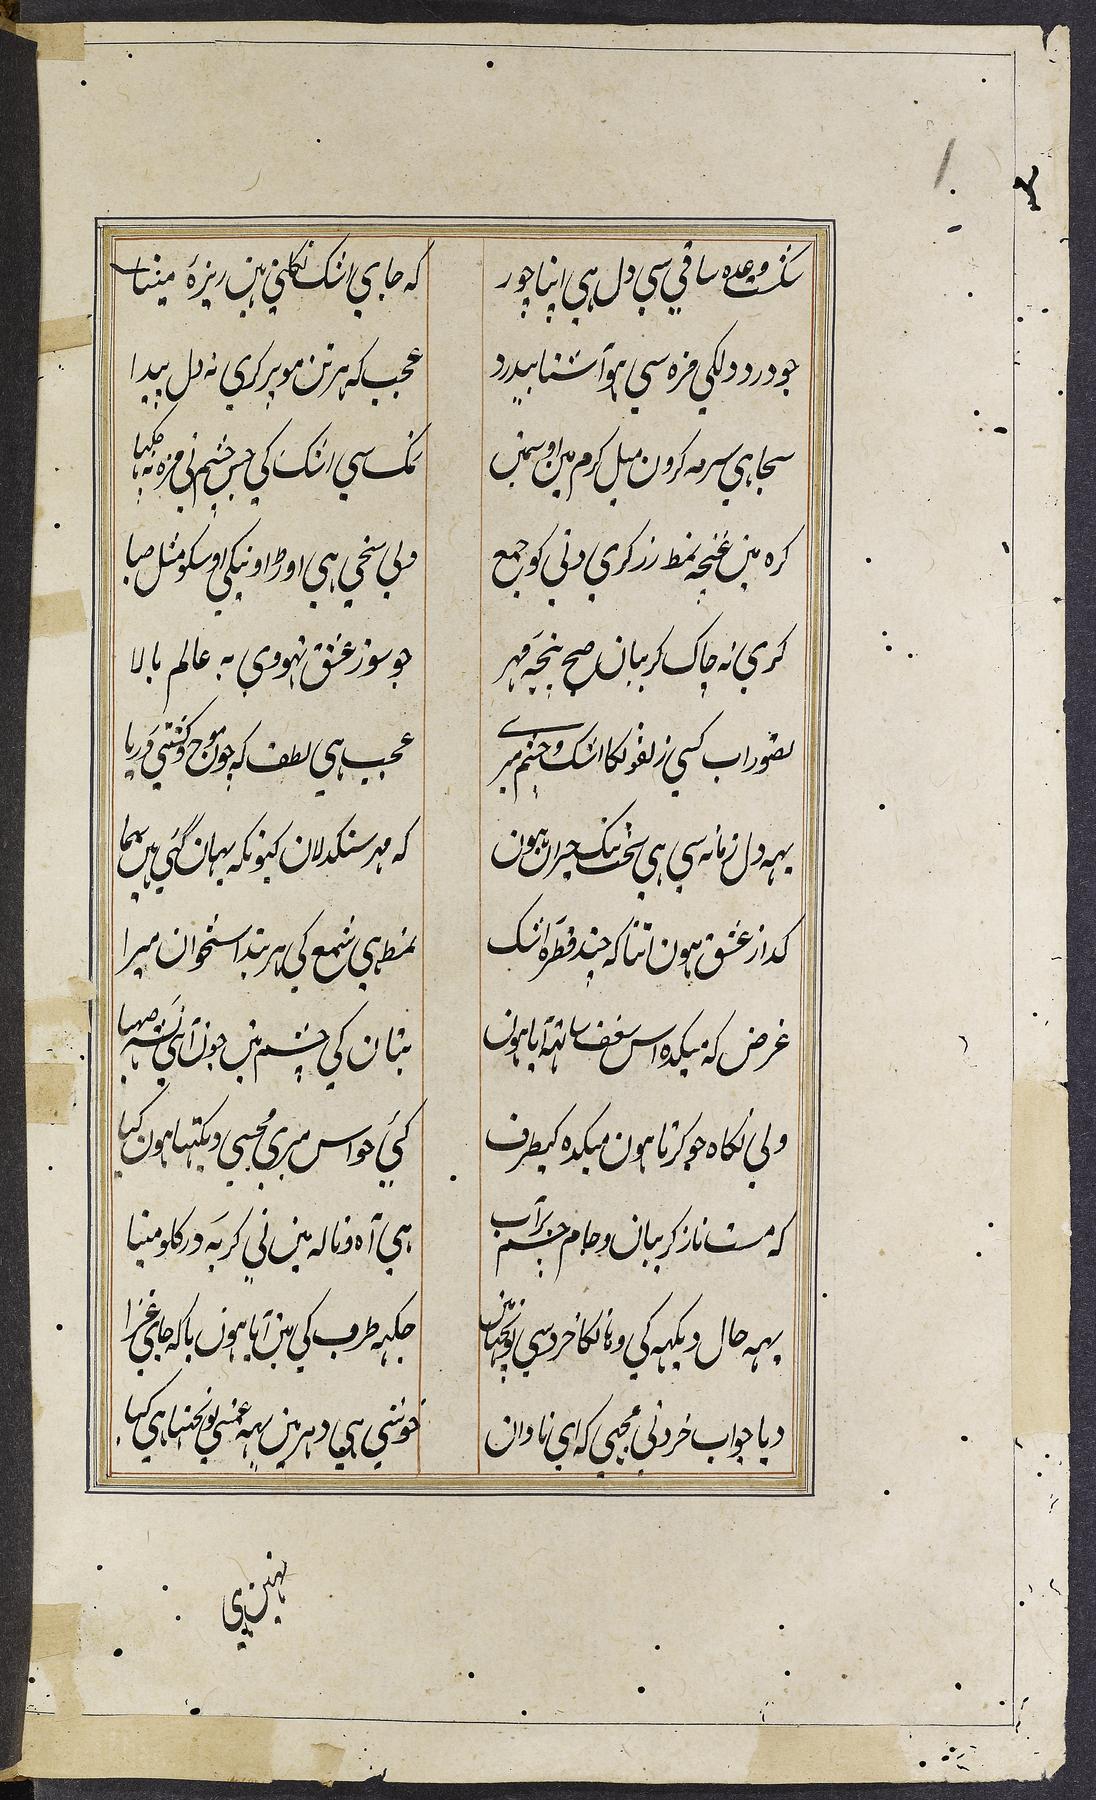 شکست وعده ساقی سی دل ہی اپنا چور کہ جای اشک نکلنی ہین ریزۂ مینا
جو درد دلکی مزہ سی ہوا آشنا بیدرد عجب کہ ہر تن مو پر کری نہ دل پیدا
سجا ہی سرمہ کرون میل کرم مین اوسمین نمک سی اشک کی جس چشم نی مزہ نہ چکہا
کرہ مین غنچہ نمط زر کری دنی کو جمع ولی سخی ہی اوڑاونیکی اوسکو مثل صبا
کری نہ چاک کریبان صبح پنجۂ مہر جو سوز عشق نہووی بہ عالم بالا
تصور اب کسی زلفونکا اشک و چشم میری عجب ہی لطف کہ جون موج و کشتی دریا
یہہ دل زمانہ سی ہی سخت تنک حیران ہون کہ مہر سنکدلان کیونکہ یہان گئی ہین سما
کداز عشق ہون اتنا کہ چند قطرۂ اشک نمط ہی شمع کی ہر بند استخوان میرا
غرض کہ میکدہ اس سغف ساتھہ آیا ہون بتان کی چشم مین جون آئی نشہ صہبا
ولی نکاہ جو کرتا ہون میکدہ کیطرف کئی حواس میری مجسی دیکتہا ہون کیا
کہ مست ناز کریبان و جام چشم پر آب ہی آہ و نالہ مین نی کریہ در کلو مینا
یہہ حال دیکہہ کی وہانکا خرد سی پونچہا مین جکہہ طرب کی مین آیا ہون یا کہ جای عزا
دیا جواب خرد نی مجہی کہ ای نادان خوشی ہی دہر مین یہہ غمسی پونچہتا ہی کیا
نہین ہی